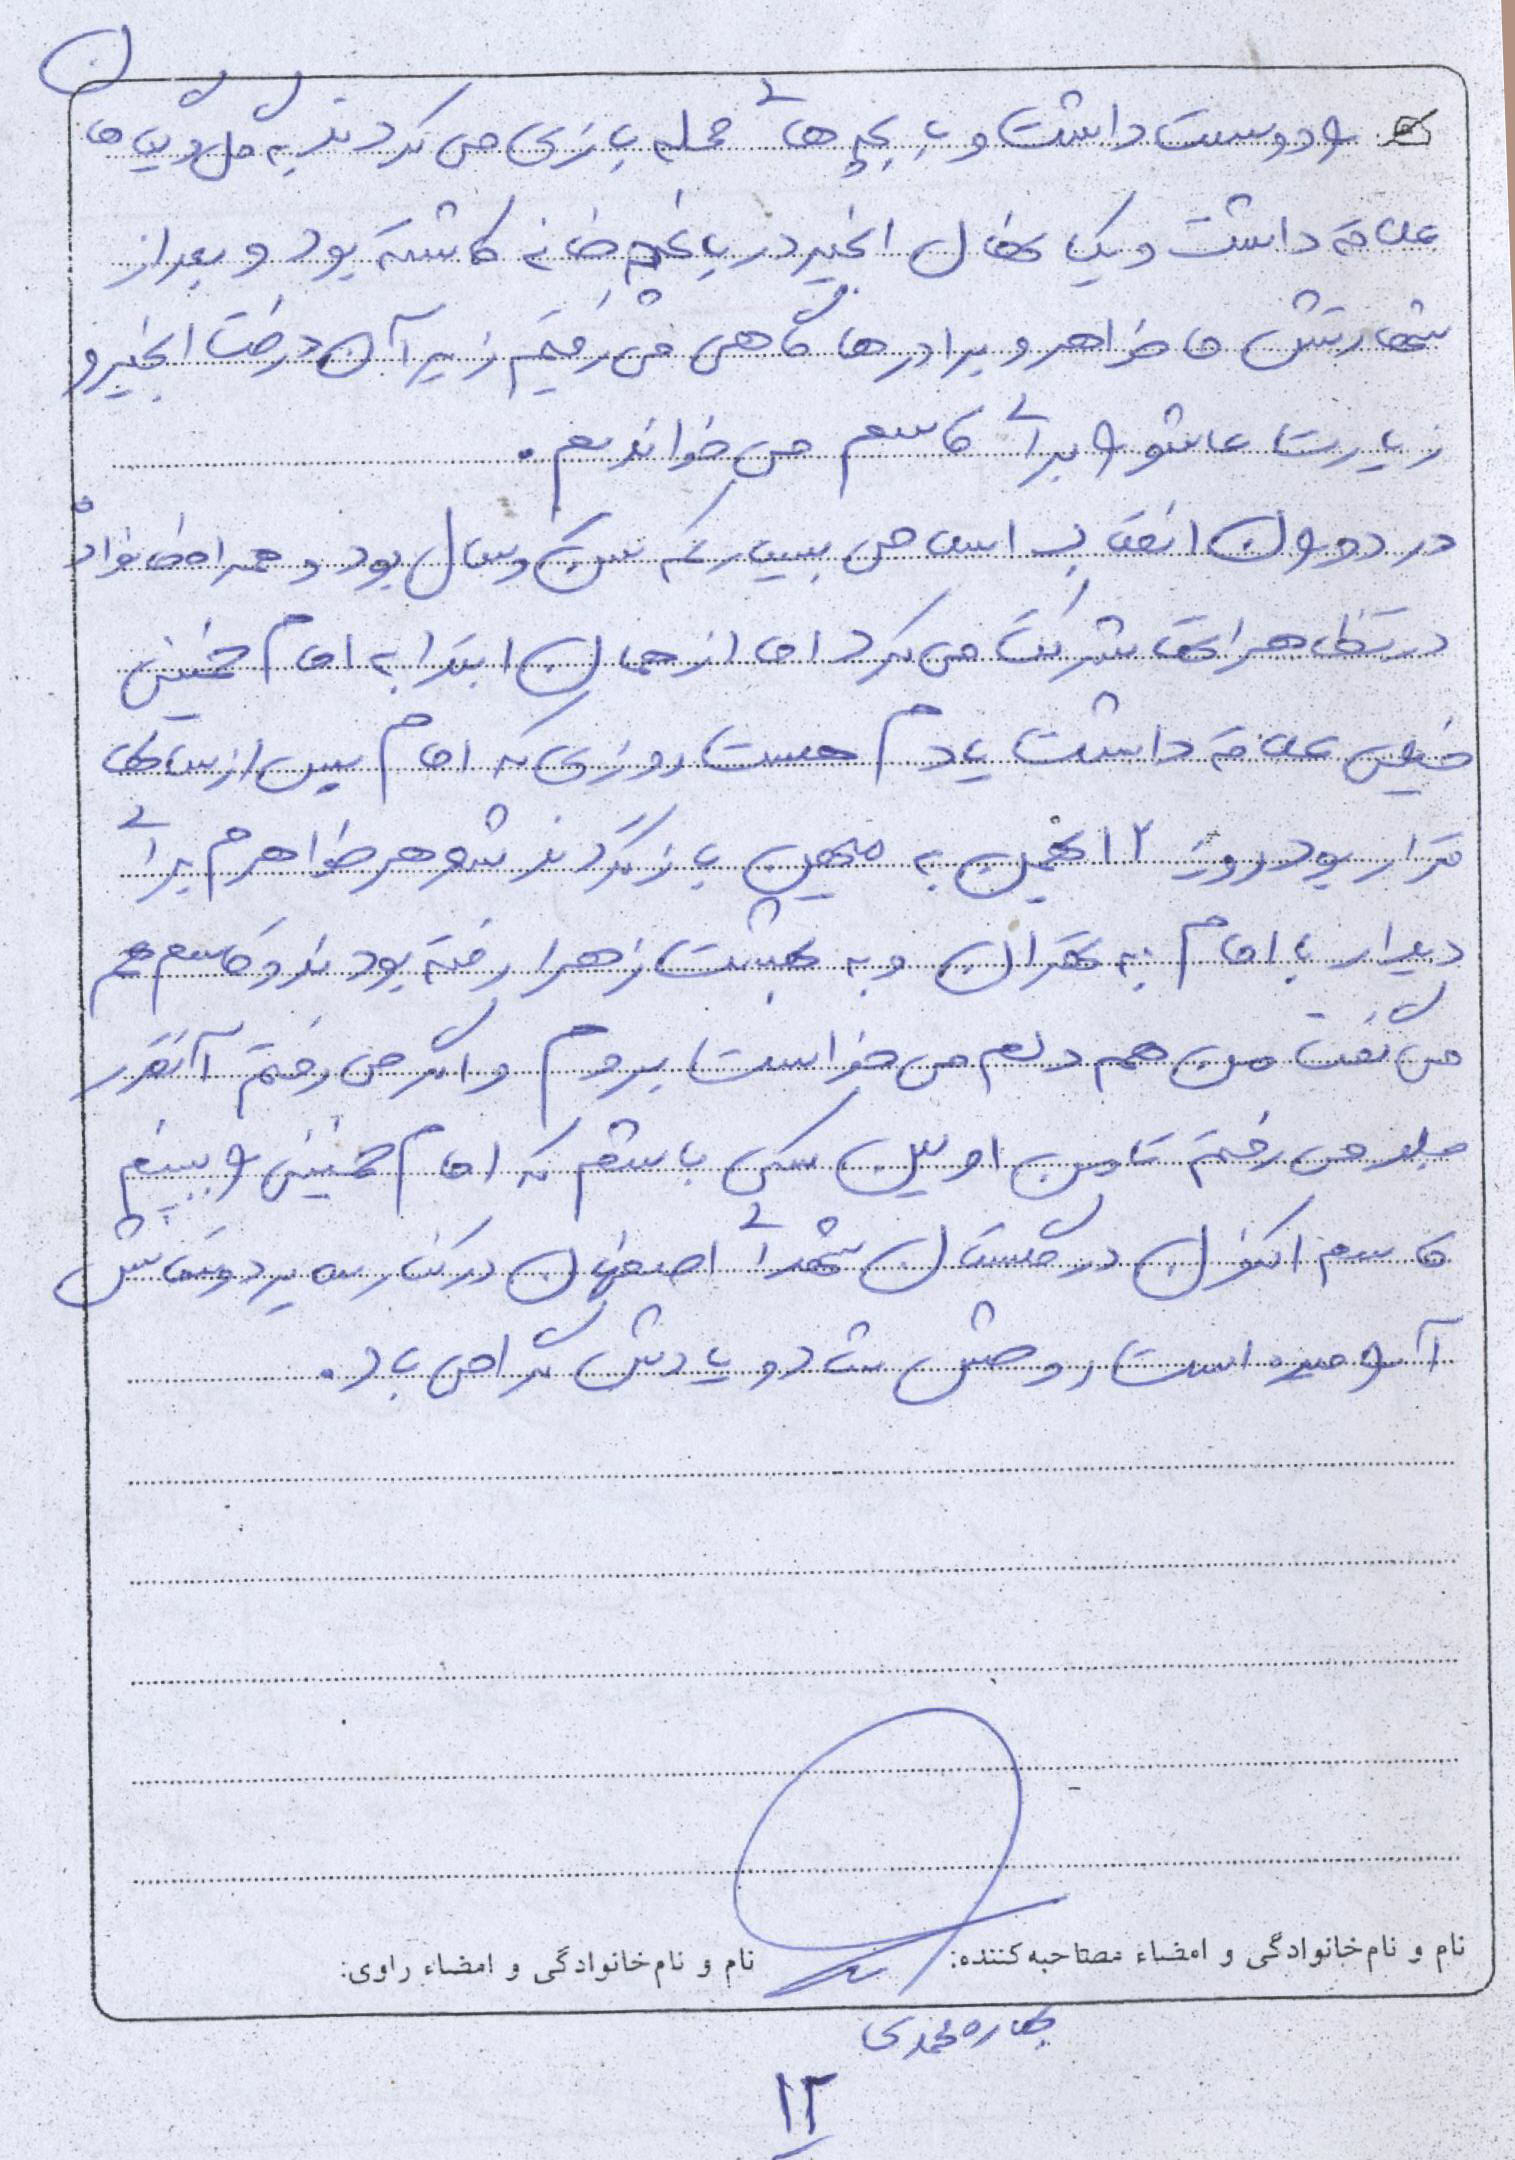 را دوست داشت و با بچه های محله بازی می کردند به گل و گیاه ها
علاقه داشت و یک نهال انجیر در باغچه خانه کاشته بود و بعد از
شهادتش ما خواهر و برادرها گاهی می رفتیم زیر آن درخت انجیر و
زیارت عاشورا برای قاسم می خواندیم.
در دوران انقلاب اسلامی بسیار کم سن و سال بود و همراه خانواده
در تظاهرات شرکت می کرد اما از همان ابتدا به امام خمینی
خیلی علاقه داشت یادم هست روزی که امام پس از سالها
قرار بود روز ۱۲ بهمن به میهن بازگردند شوهر خواهرم برای
دیدار با امام به تهران و به بهشت زهرا رفته بودند و قاسم هم
می گفت من هم دلم می خواست بروم و اگر می رفتم آنقدر
جلو می رفتم تا من اولین کسی باشم که امام خمینی را ببینم
قاسم اکنون در گلستان شهدای اصفهان در کنار سایر دوستانش
آرامیده است روحش شاد و یادش گرامی باد.
نام و نام خانوادگی و امضاء مصاحبه کننده: نام و نام خانوادگی و امضاء راوی:
بهاره محمدی
۱۲